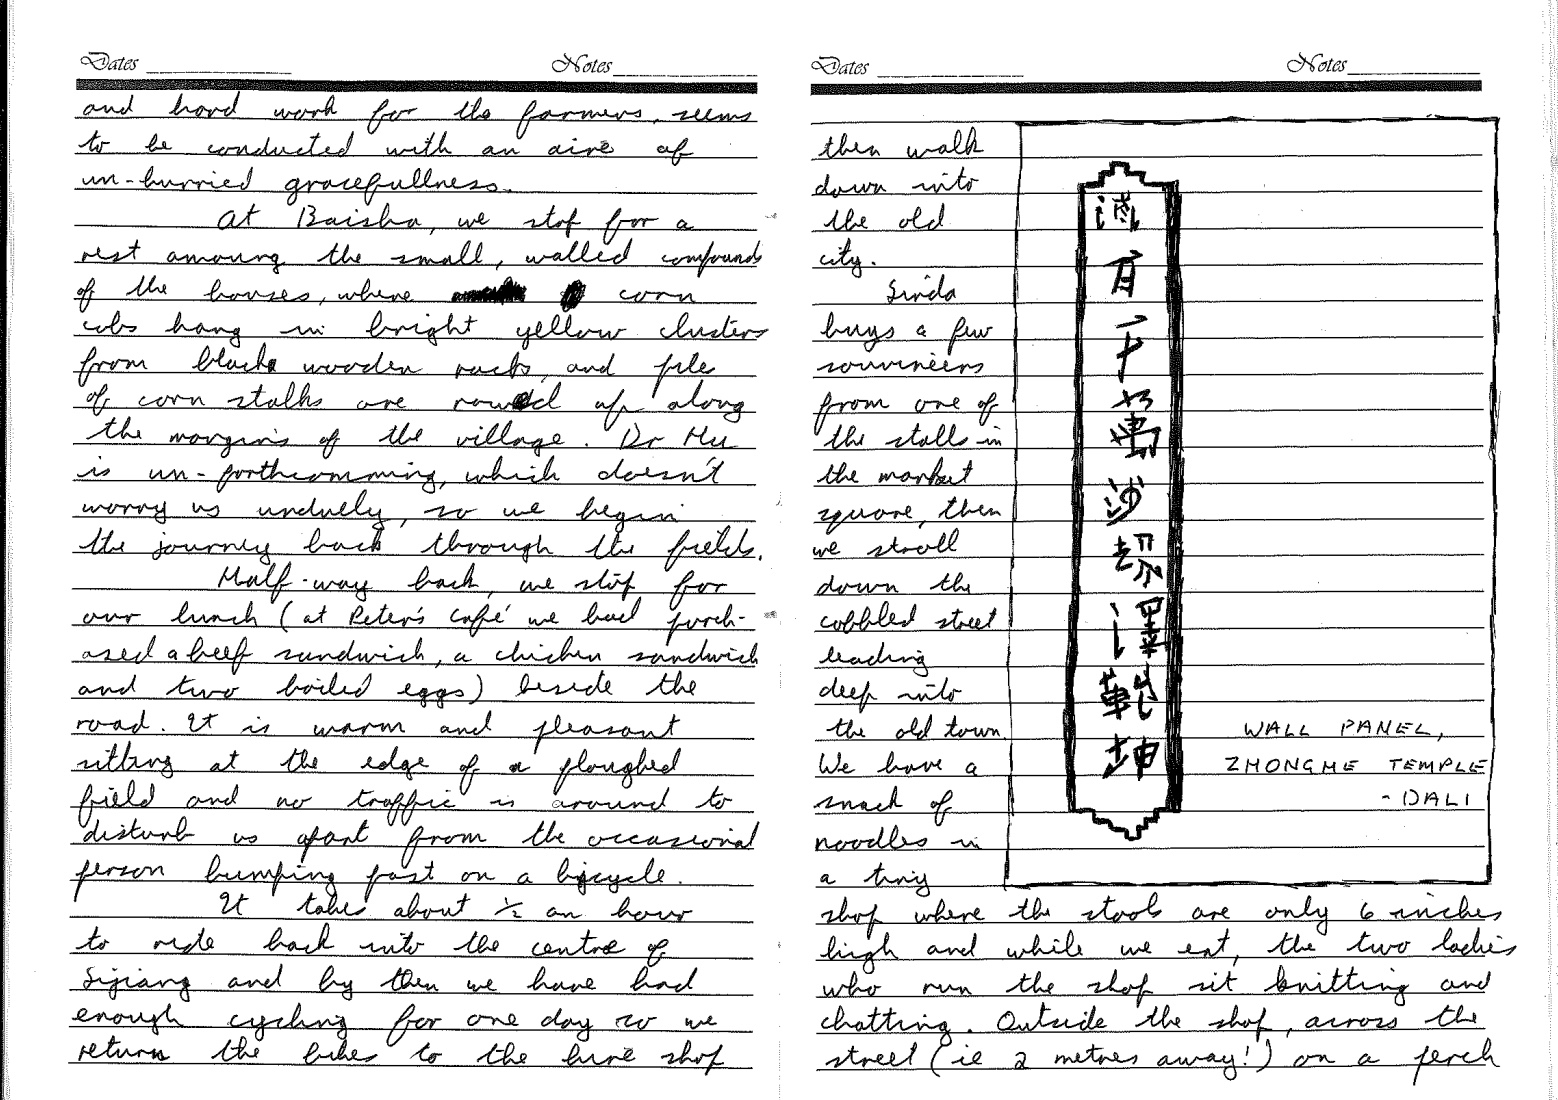 Dates Notes
and hard work for the farmers, seems
to be conducted with an aire of
un-hurried gracefullness.
At Baisha, we stop for a
rest amoung the small, walled compounds
of the houses, where corn
cobs hang in bright yellow clusters
from black wooden racks, and pile
of corn stalks are rowed up along
the margins of the village. Dr Hu
is un-forthcomming, which doesn't
worry us unduely, so we begin
the journey back through the fields.
Half-way back, we stop for
our lunch (at Peter's Café we had purch-
ased a beef sandwich, a chicken sandwich
and two boiled eggs) beside the
road. It is warm and pleasant
sitting at the edge of a ploughed
field and no traffic is around to
disturb us apart from the occasional
person bumping past on a bicycle.
It takes about ½ an hour
to ride back into the centre of
Lijiang and by then we have had
enough cycling for one day so we
return the bikes to the hire shop
Dates Notes
then walk
down into
the old
city.
Linda
buys a few
souvineers
from one of
the stalls in
the market
square, then
we stroll
down the
cobbled street
leading
deep into
the old town.
We have a
snack of
noodles in
a tiny
shop where the stools are only 6 inches
high and while we eat, the two ladies
who run the shop sit knitting and
chatting. Outside the shop, across the
street (ie 2 metres away!) on a perch
百
千
萬
沙
澤
乾
坤
WALL PANEL,
ZHONGHE TEMPLE
- DALI